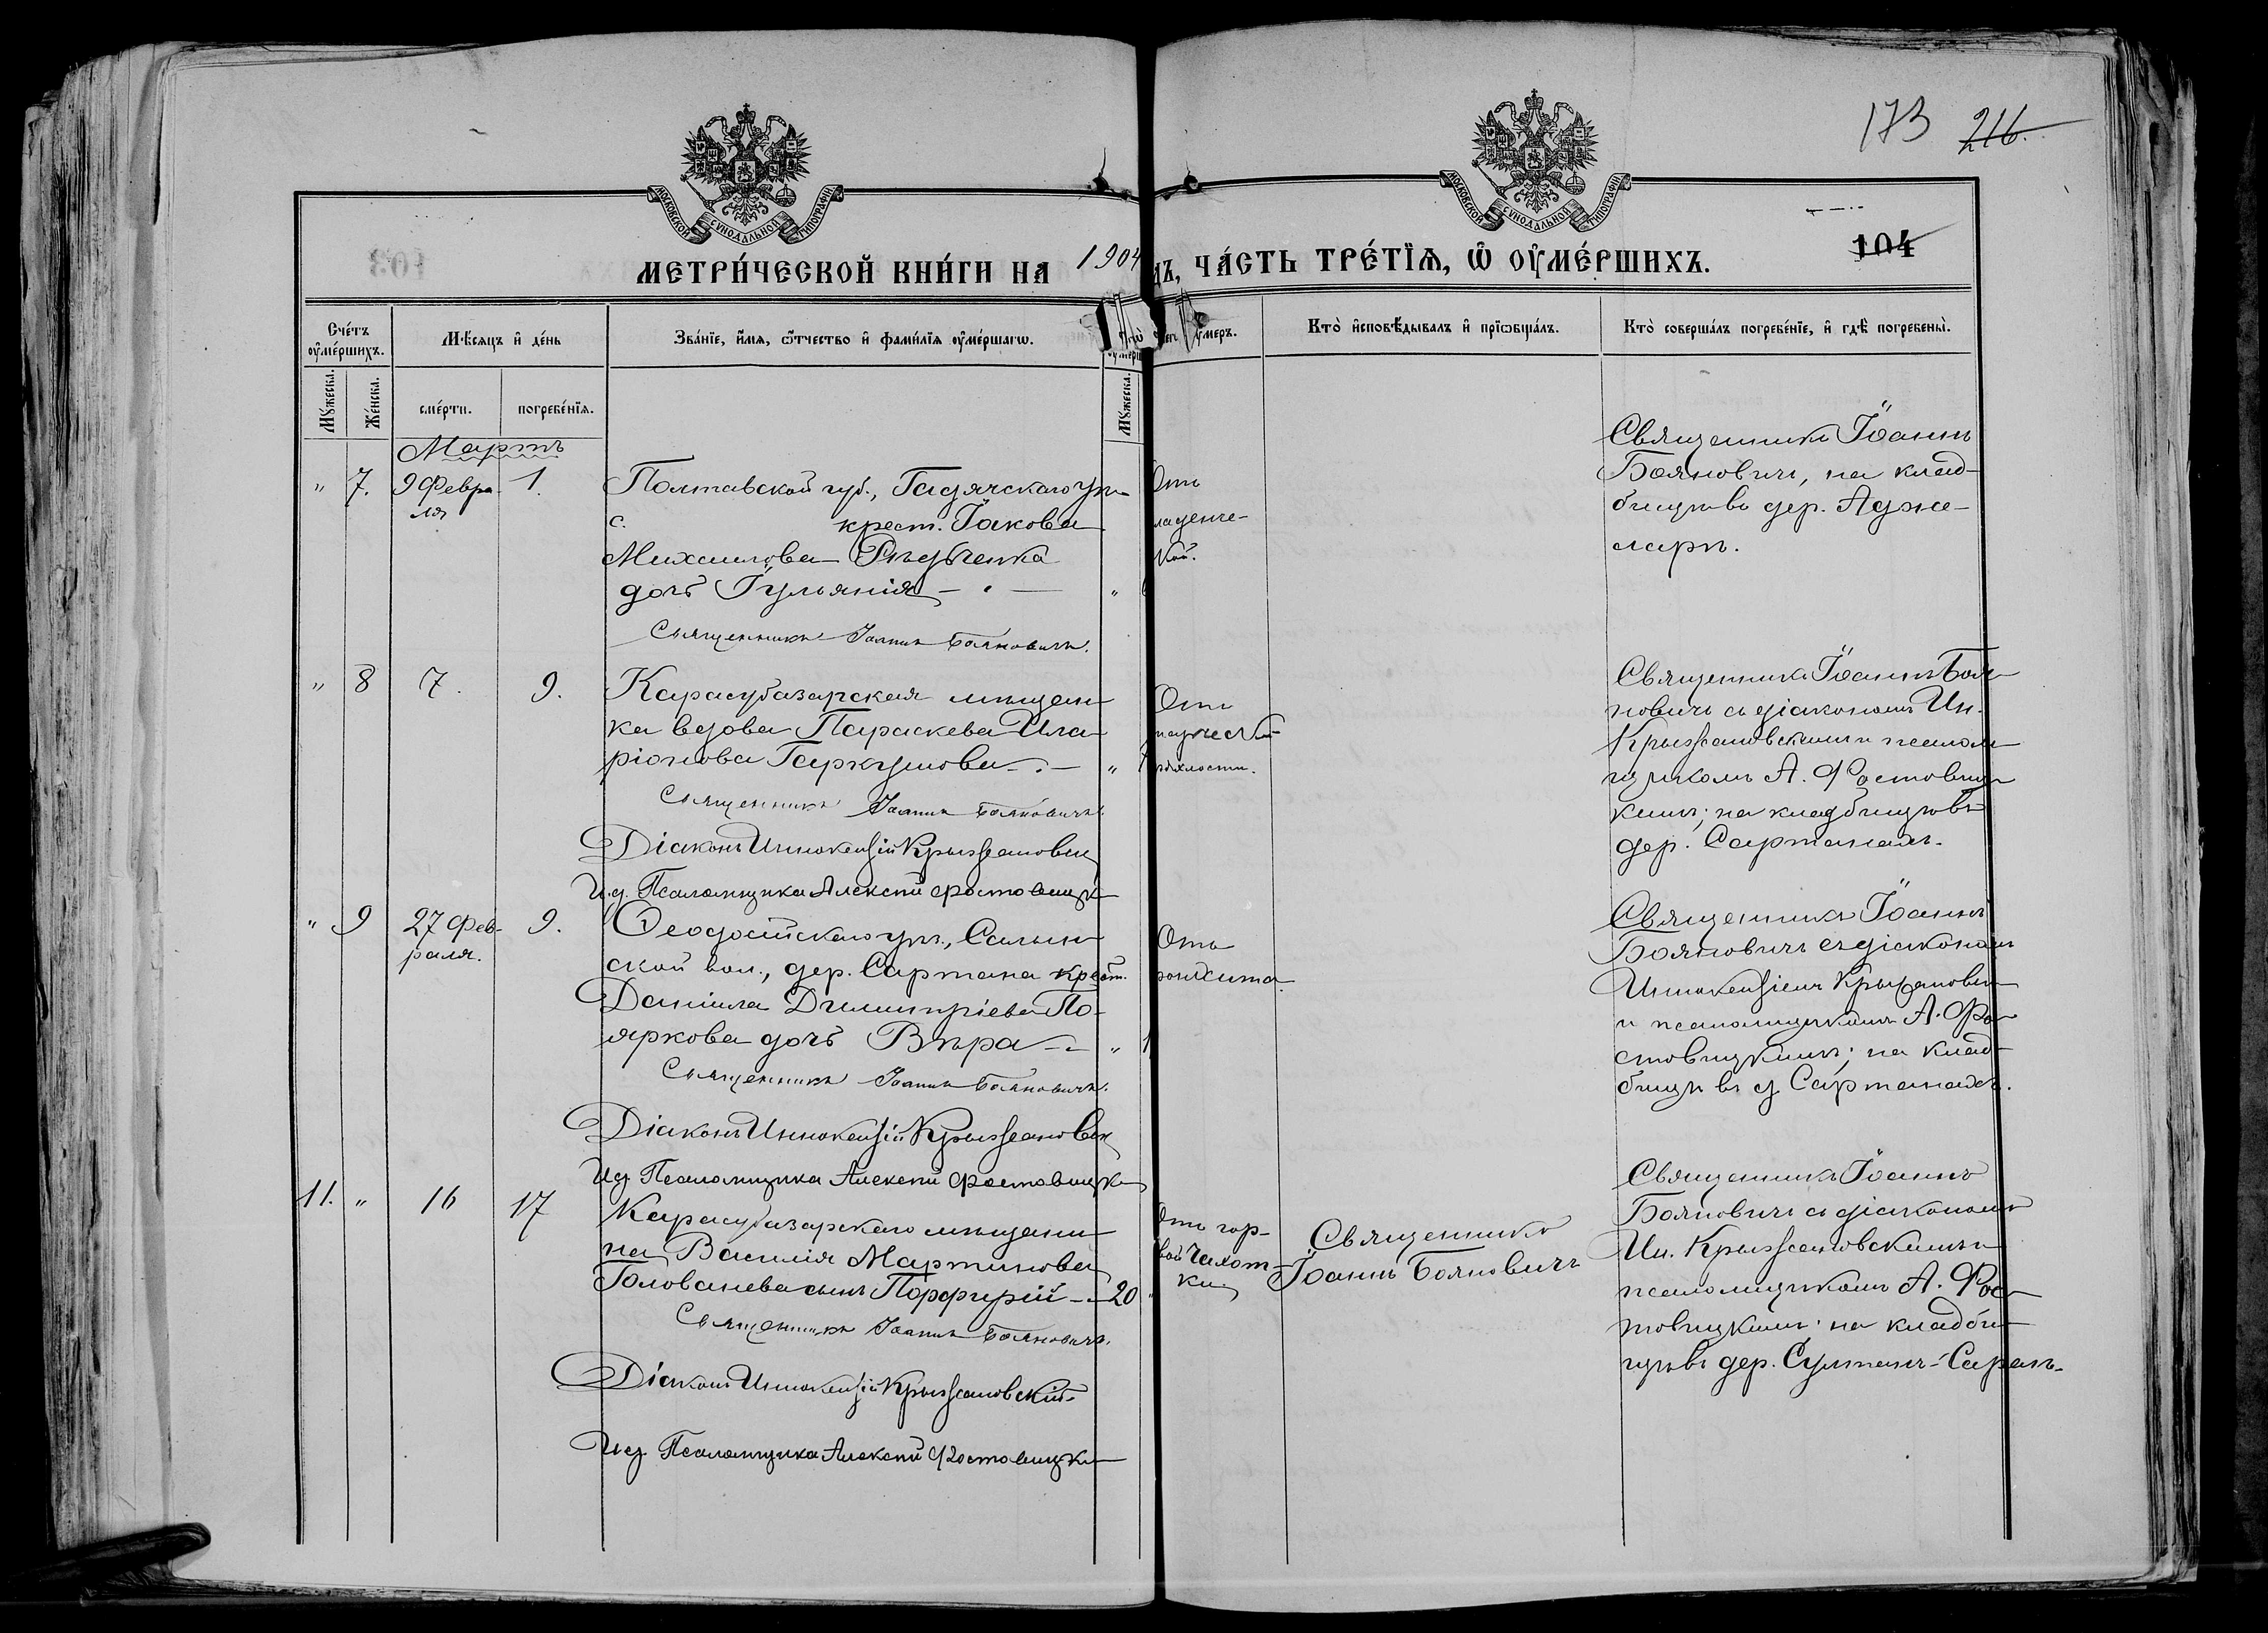 173 216.
МОСКОВСКОЙ СУНОДАЛЬНОЙ ТИПОГРАФІИ
МОСКОВСКОЙ СУНОДАЛЬНОЙ ТИПОГРАФІИ
104
МЕТРИ́ЧЕСКОЙ КНИ́ГИ НА 1904 ДЪ, ЧА́СТЬ ТРЕ́ТІѦ, Ѡ ОУМЕ́РШИХЪ.
Сче́тъ оумершихъ.
Мѣсяцъ и день
Зва́нїе, и҆́мя, ѻ҆́тчество и҆ фами́лїя оумершагѡ.
умеръ.
Кто̀ и҆сповѣ́дывалъ и҆ прїѡбща́лъ.
Кто̀ соверша́лъ погребе́нїе, и҆ гдѣ̀ погребены̀.
Мꙋжеска.
Же́нска.
сме́рти.
погребе́нїя.
Мꙋжеска.
Мартъ
" 7. 9 Февра-
ля
1.
Полтавской губ., Гадячскаго уѣз-
с. крест. Іакова
Михаилова
дочь Іуліанія
"
Священникъ Іоаннъ Бояновичъ.
Отъ
ладенче-
кой.
Священникъ Іоаннъ
Бояновичъ, на клад-
бищѣ въ дер. Адже-
ларъ.
" 8 7. 9.
Карасубазарская мѣщан-
ка вдова Параскева Ила-
ріонова
"
Священникъ Іоаннъ Бояновичъ.
Діаконъ Иннокентій Крыжановск
И.д. Псаломщика Алексѣй Фростовицкі
Отъ
Священникъ Іоаннъ Боя-
новичъ съ діакономъ Ин.
Крыжановскимъ и псалом-
щикомъ А. Фростовиц-
кимъ; на кладбищѣ въ
дер. Сартанахъ.
" 9 27 Фев-
раля.
9.
Ѳеодосійскаго уѣз., Салын-
ской вол., дер. Сартана крест.
Даніила Димитріева По-
яркова дочь Вѣра
" 1
Священникъ Іоаннъ Бояновичъ.
Діаконъ Иннокентій Крыжановск
И.д. Псаломщика Алексѣй Фростовицкі
Отъ
ронхита.
Священникъ Іоаннъ
Бояновичъ съ діакономъ
Иннокентіемъ Крыжановск
и псаломщикомъ А. Фро-
стовицкимъ; на клад-
бищѣ въ д. Сартанахъ.
11. " 16 17
Карасубазарскаго мѣщани-
на Василія Мартинова
Голованева сынъ Порфирій
20 "
Священникъ Іоаннъ Бояновичъ.
Діаконъ Иннокентій Крыжановскій
И.д. Псаломщика Алексѣй Фростовицкі
Отъ гор-
вой чахот-
ки
Священникъ
Іоаннъ Бояновичъ
Священникъ Іоаннъ
Бояновичъ съ діакономъ
Ин. Крыжановскимъ и
псаломщикомъ А. Фрос-
товицкимъ; на кладби-
щѣ въ дер. Султанъ-Сараѣ.